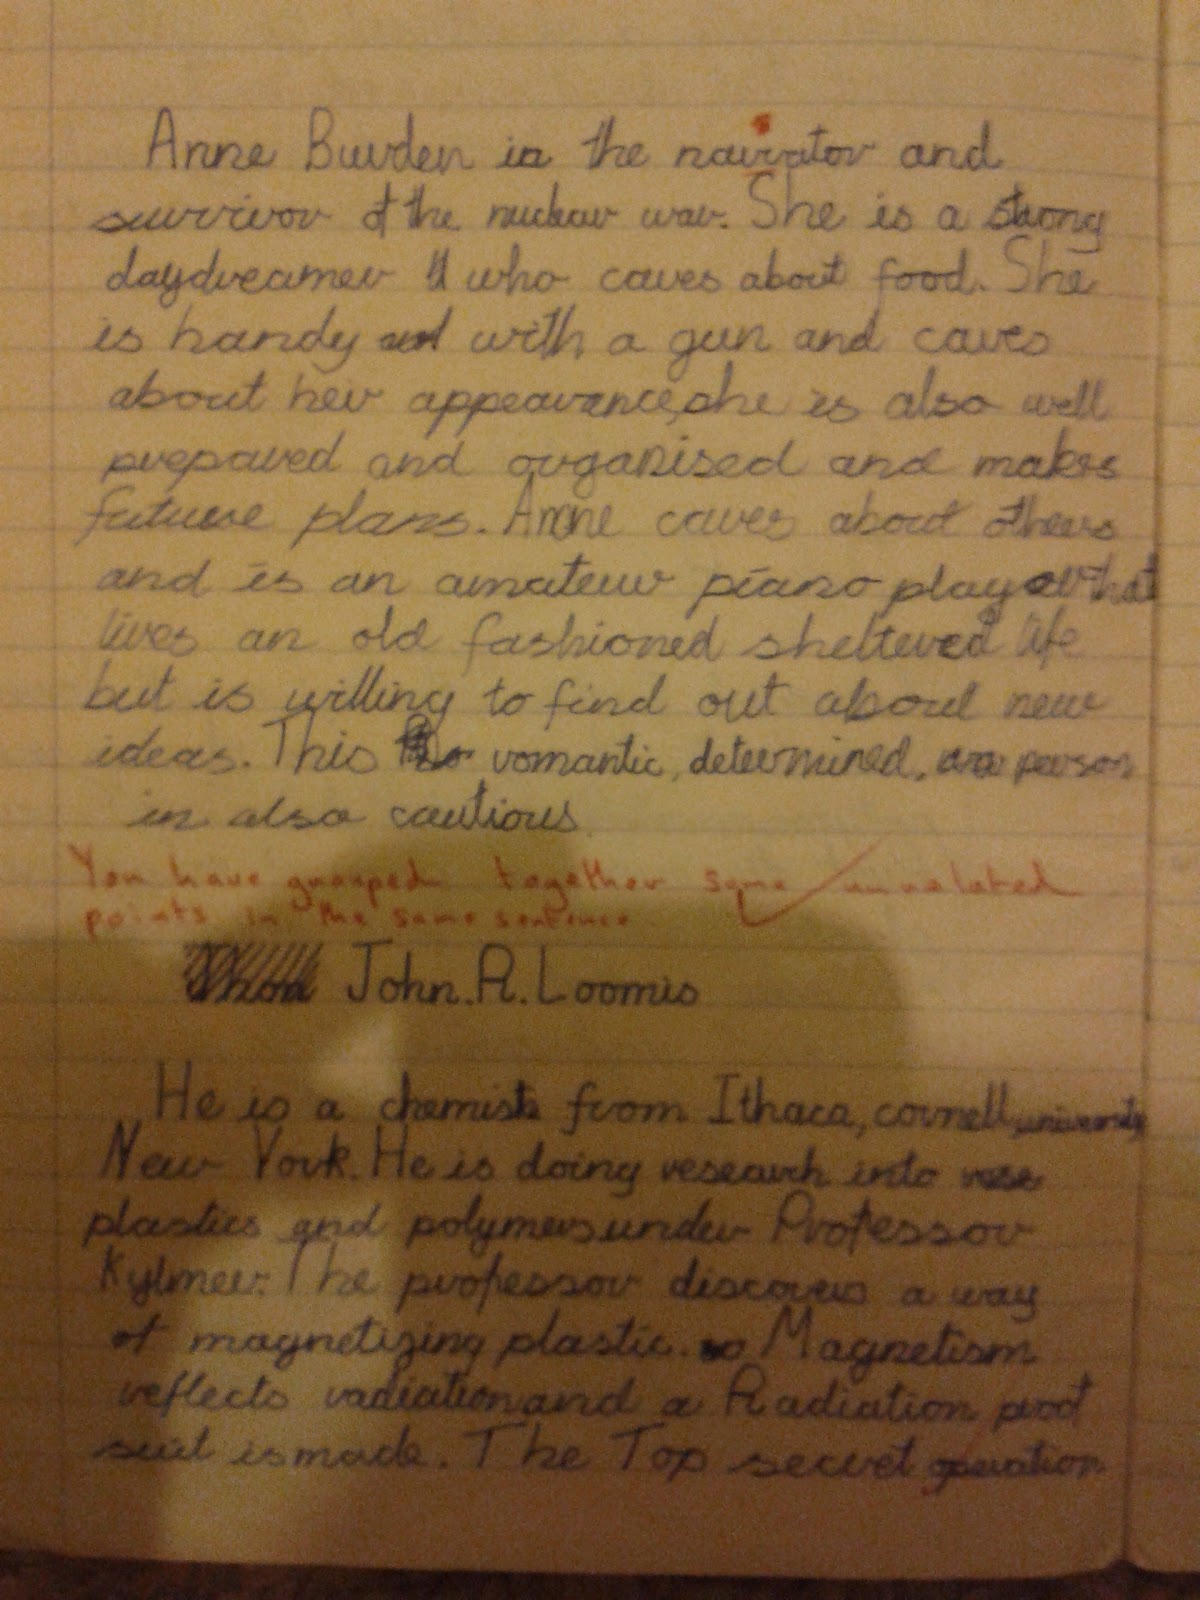 Anne Burden is the narrator and
survivor of the nuclear war. She is a strong
daydreamer who cares about food. She
is handy with a gun and cares
about her appearance, she is also well
prepared and organised and makes
future plans. Anne cares about others
and is an amateur piano player that
lives an old fashioned sheltered life
but is willing to find out about new
ideas. This romantic, determined, person
in also cautious.
You have grouped together some unrelated
points in the same sentence.
John.A.Loomis
He is a chemist from Ithaca, cornell university,
New York. He is doing research into
plastics and polymers under Professor
Kylmer. The professor discovers a way
of magnetizing plastic. Magnetism
reflects radiation and a Radiation proof
suit is made. The Top secret operation